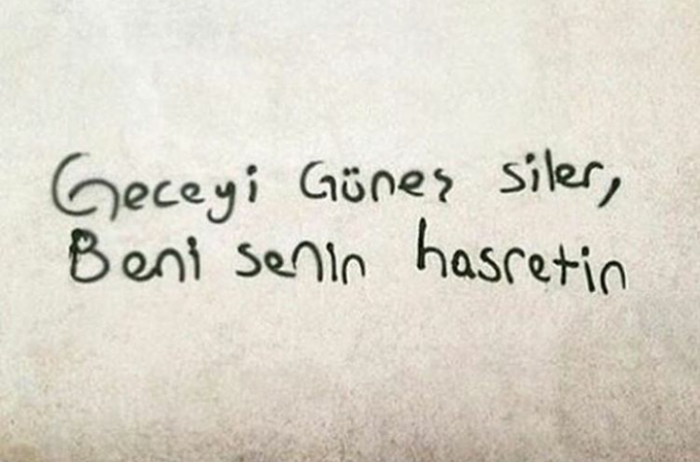 Geceyi Güneş siler,
Beni senin hasretin